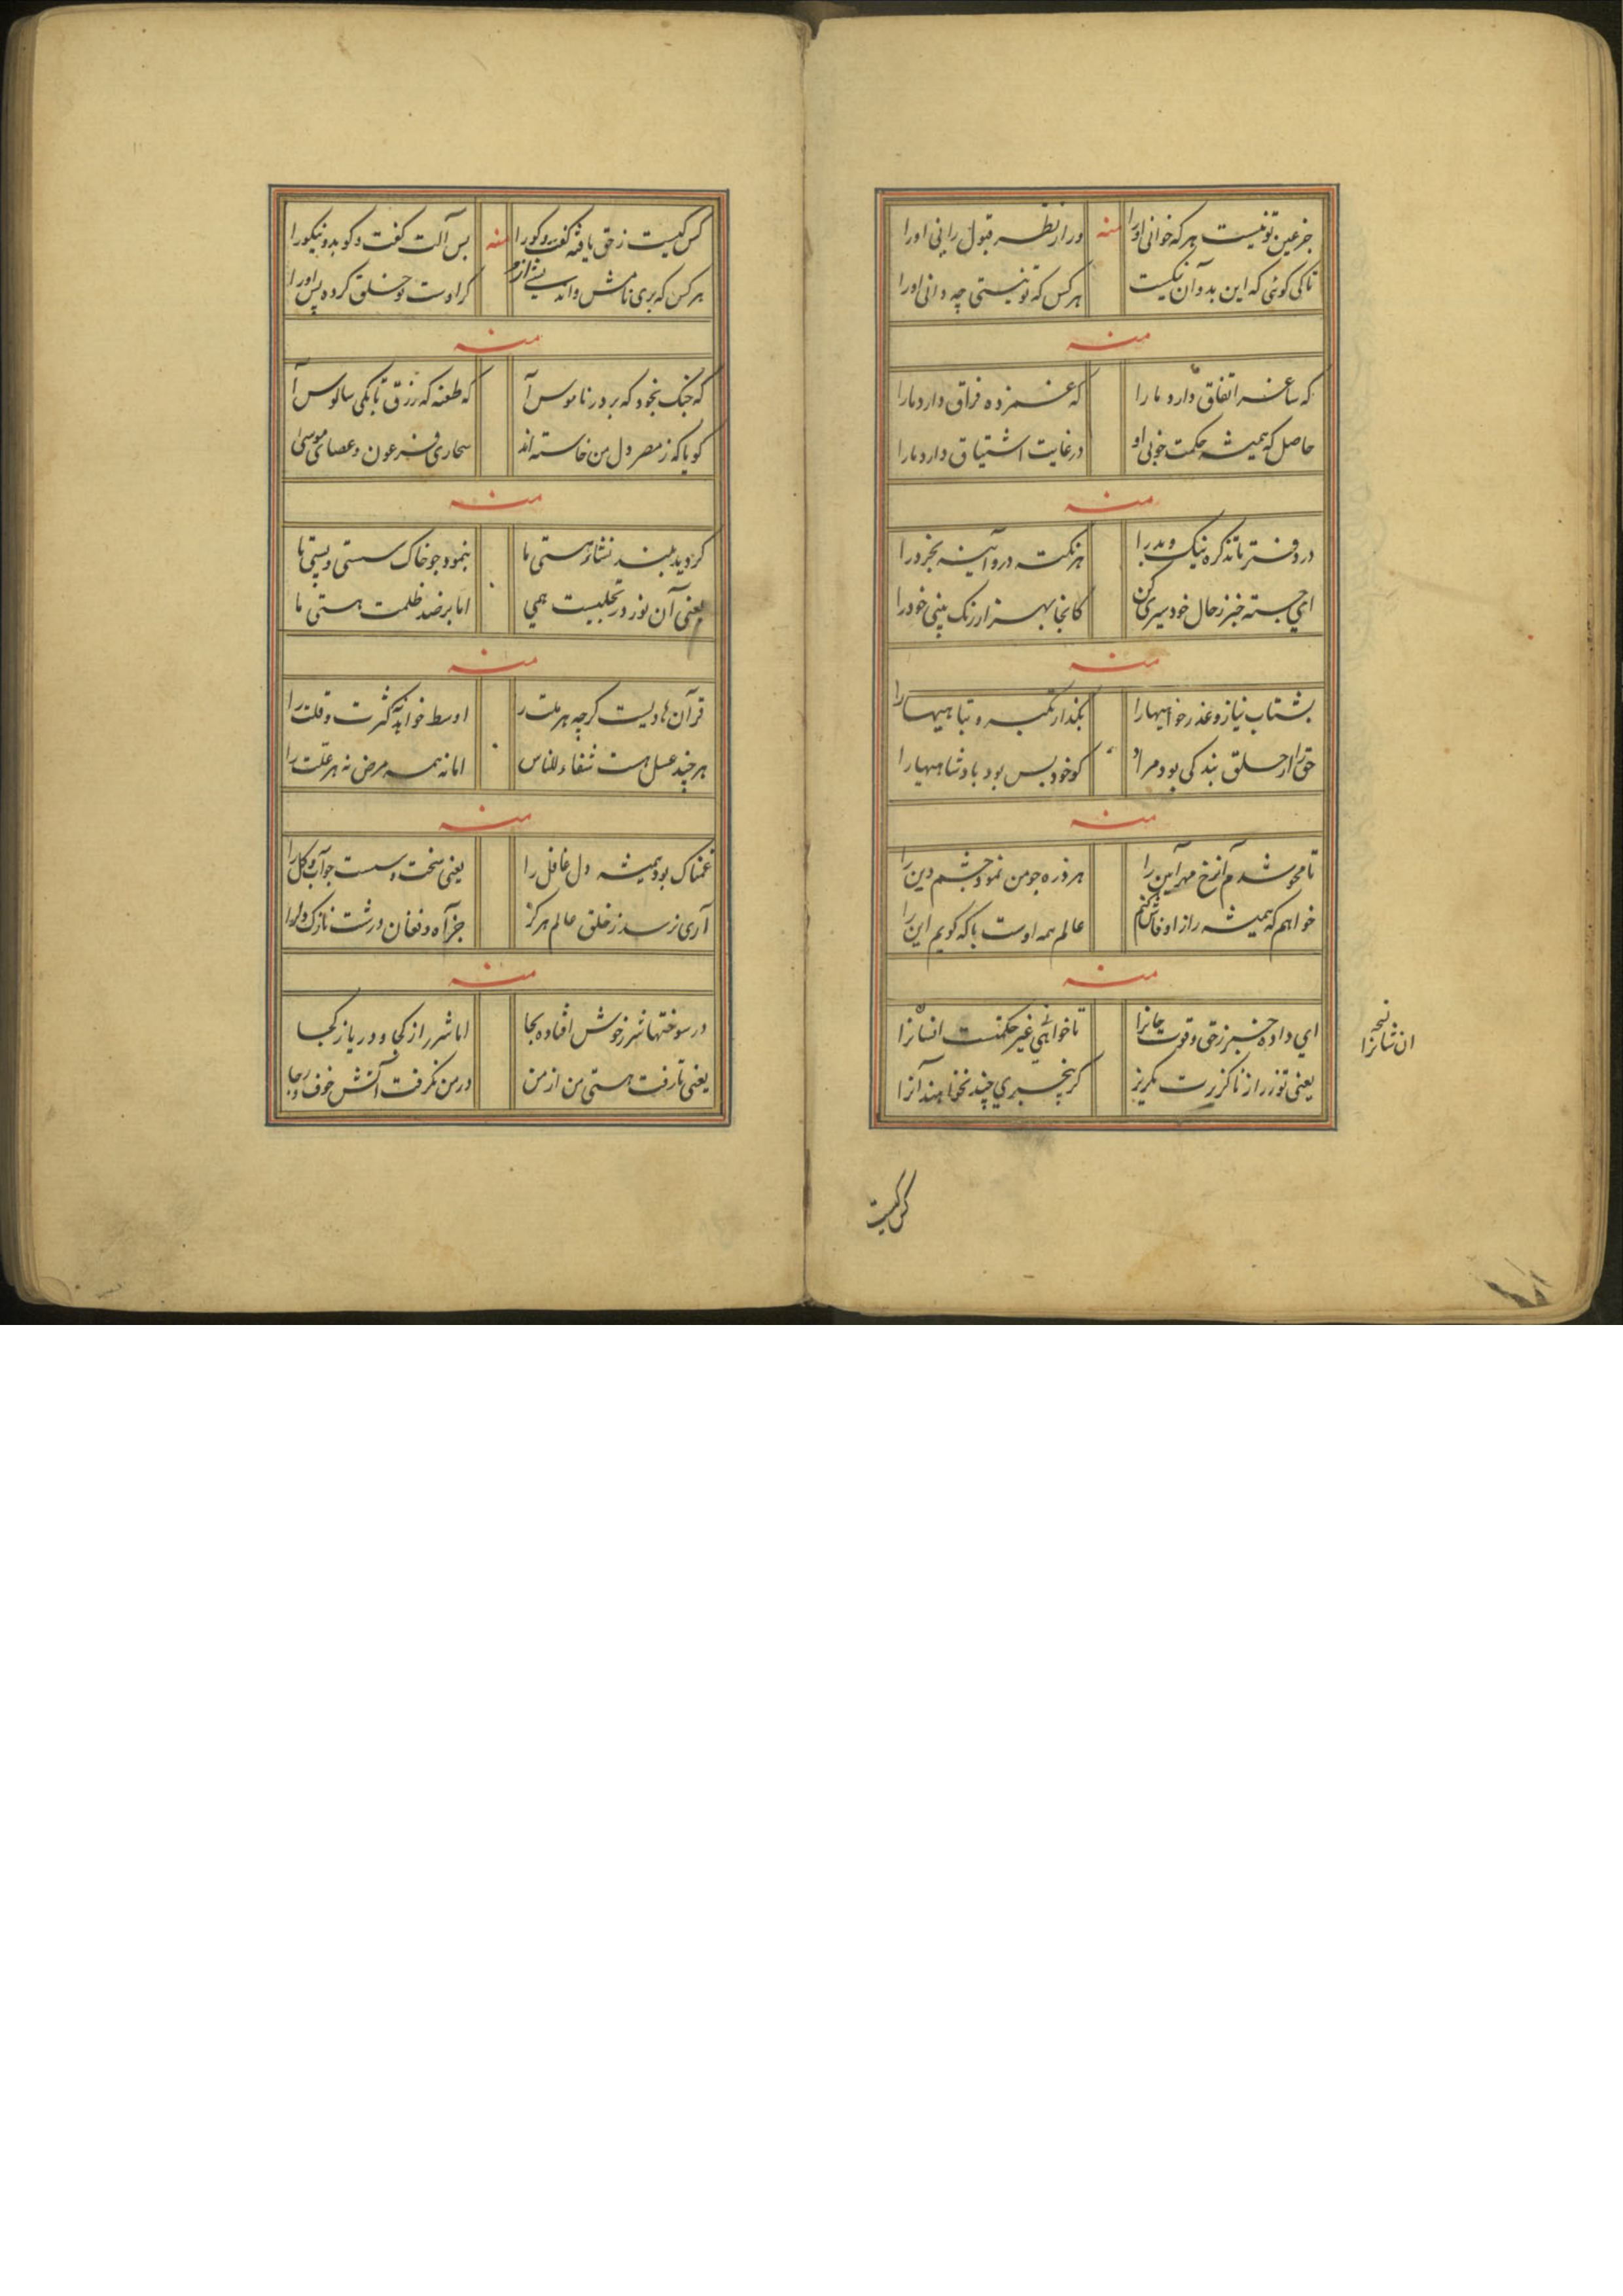 جز عین تو نیست هر که خوانی او را منه ور از نظر قبول رانی او را
تا کی گوئی که این بد و آن نیکست هر کس که تو نیستی چه دانی او را
منه
که ساغر اتفاق دارد ما را که غمزده فراق دارد ما را
حاصل که همیشه حکمت خوبی او در غایت اشتیاق دارد ما را
منه
در دفتر ما تذکره نیک و بد را هر نکته درو آینه بخرد را
ای جسته خبز ز حال خود سیری کن کانجا بهزار رنگ بینی خود را
منه
بشتاب نیاز و عذر خواهیها را بگذار تکبر و تباهیها را
حق را از خلق بندگی بود مراد کو خود بس بود پادشاهیها را
منه
تا محو شدم آنرخ مهر آیین را هر ذره جو من نمود چشم دین را
خواهم که همیشه راز او فاش کنم عالم همه اوست با که گویم این را
منه
ای داده خبر ز حق و قوت جانرا تا خوانی غیر حکمت انسانرا
یعنی تو زر از ناگزیرت مگریز گر بیخبری چند نخواهند آنرا
نسخه
انشانرا
کس کیست
کس کیست ز حق یافته گفت و گو را منه بس آلت گفت و گو بد و نیکو را
هر کس که بری نامش و اند پیشی ازو کراوست تو خلق کرده پس او را
منه
که جنگ بخود که بر در ناموس آ که طعنه که زرق تا بکی سالوس آ
گویا که ز مصر دل من خاسته اند سحاری فرعون و عصای موسی
منه
گردید بلند نشاء هستی ما بنمود جو خاک سستی و پستی ما
یعنی آن نور در تجلیست همی اما بر ضد ظلمت هستی ما
منه
قرآن هادیست گر چه هر ملت را اوسط خواند کثرت و قلت را
هر چند عسل هست شفاء للناس اما نه همه مرض نه هر علت را
منه
غمناک بود همیشه دل غافل را یعنی سخت و سست جو آب و گل را
آری نرسد ز خلق عالم هرگز جز آه و فغان درشت نازک دل را
منه
در سوختها شرر خوش افتاده بجا اما شرر از کجا و دریا ز کجا
یعنی تا رفت هستی من از من در من نگرفت آتش خوف و رجا